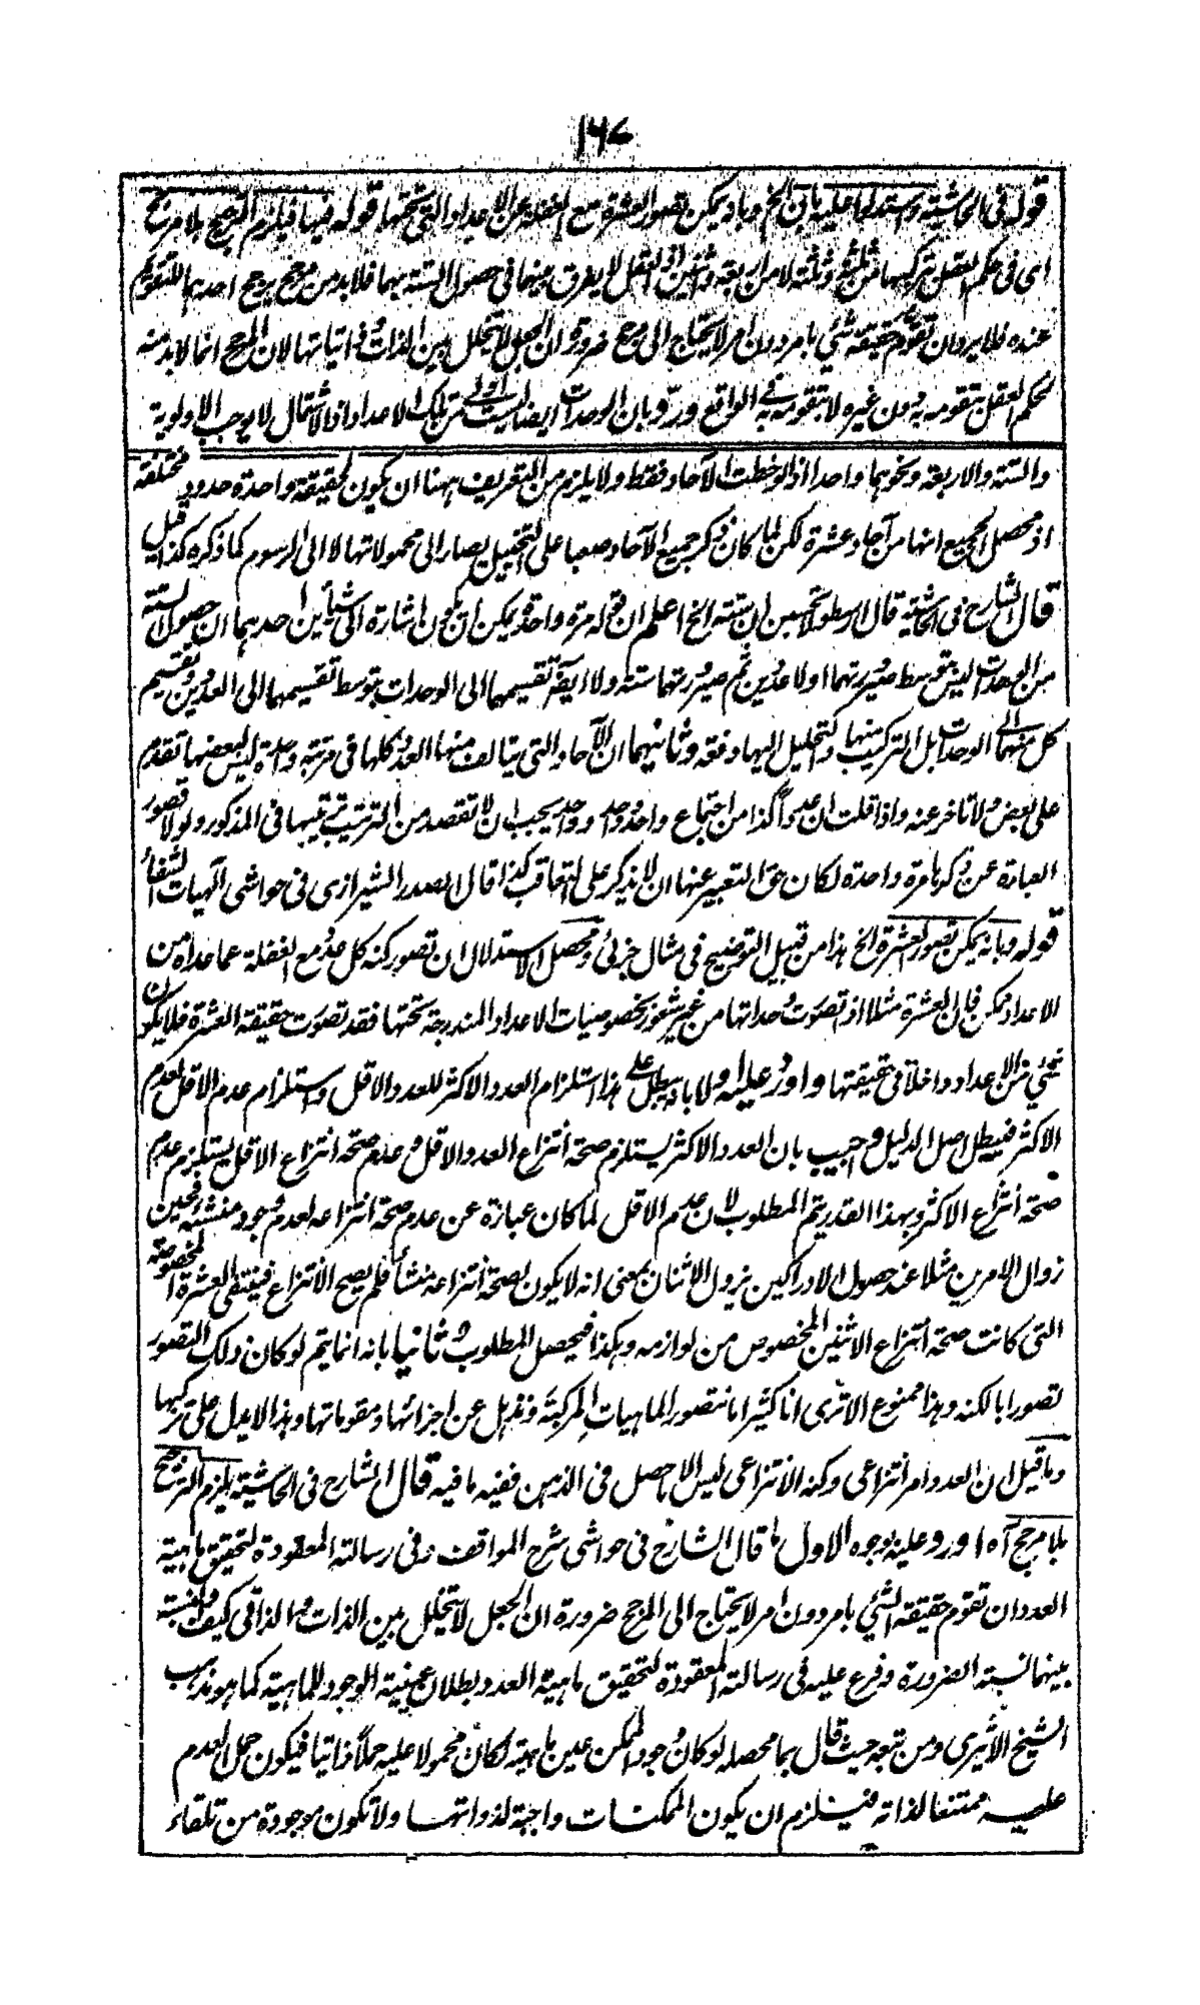 ١٦٧
قوله فى الحاشية واستدلوا عليه بان الخ وبانه يمكن تصور العشرة مع الغفلة عن الاعداد التى تحتها قوله فيها فيلزم الترجيح بلا مرجح
اى فى حكم العقل بتركبها من ثلثة وثلثة لا من اربعة واثنين اذ العقل لا يفرق بينهما فى حصول الستة بهما فلابد من مرجح يرجح احدهما للتقويم
عنده فلا يرد ان تقوم حقيقة شئ بامر دون امر لا يحتاج الى مرجح ضرورة ان الجعل لا يتخلل بين الذات وذاتياتها لان المرجح انما لابد منه
لحكم العقل بتقومه به دون غيره لا بتقومه به فى الواقع ورد وبان الوحدات ايضا ليست اولى من تلك الاعداد اذ الاشتمال لا يوجب الاولوية
والستة والاربعة ونحوهما واحدا اذ لوحظت الآحاد فقط ولا يلزم من التعريف ههنا ان يكون لحقيقة واحدة حدود مختلفة
اذ محصل الجميع انها من آحاد عشرة لكن لما كان ذكر جميع الآحاد صعبا على التخييل يصار الى محمولاتها لا الى الرسوم كما ذكره كذا قيل
قال الشارح فى الحاشية قال ارسطو لا تحسبن ان ستة الخ اعلم ان قوله مرة واحدة يمكن ان يكون اشارة الى شيأين احدهما ان حصول الستة
من الوحدات ليس بتوسط صيرورتهما اولا عددين ثم صيرورتهما ستة ولا ايضا تقسيمها الى الوحدات بتوسط تقسيمها الى العددين وتقسيم
كل منهما الى الوحدات بل التركيب منها والتحليل اليها دفعة وثانيهما ان الآحاد التى يتالف منها العدد كلها فى مرتبة واحدة ليس لبعضها تقدم
على بعض ولا تاخر عنه واذا قلت ان عددا كذا من اجتماع واحد وواحد وواحد يجب ان لا تقصد من الترتيب ترتيبها فى المذكور ولولا قصور
العبارة عن ذكرها مرة واحدة لكان حق التعبير عنها ان لا يذكر على التعاقب كذا قال الصدر الشيرازى فى حواشى آلهيات الشفاء
قوله وبانه يمكن تصور العشرة الخ هذا من قبيل التوضيح فى مثال جزئى ومحصل الاستدلال ان تصور كنه كل عدد مع الغفلة عما عداه من
الاعداد ممكن فان العشرة مثلا اذ تصورت وحداتها من غير شعور بخصوصيات الاعداد المندرجة تحتها فقد تصورت حقيقة العشرة فلا يكون
شئ من الاعداد داخلا فى حقيقتها واورد عليه اولا بانه يبطل على هذا استلزام العدد الاكثر للعدد الاقل واستلزام عدم الاقل لعدم
الاكثر فيبطل اصل الدليل واجيب بان العدد الاكثر يستلزم صحة انتزاع العدد الاقل وعدم صحة انتزاع الاقل يستلزم عدم
صحة انتزاع الاكثر وبهذا القدر يتم المطلوب لان عدم الاقل لما كان عبارة عن عدم صحة انتزاعه لعدم وجود منشئه فحين
زوال الامرين مثلا عند حصول الادراكين يزول الاثنان بمعنى انه لا يكون لصحة انتزاعه منشأ فلم يصح الانتزاع فينتفى العشرة المخصوصة
التى كانت صحة انتزاع الاثنين المخصوص من لوازمه وهكذا فيحصل المطلوب وثانيا بانه انما يتم لو كان ذلك التصور
تصورا بالكنه وهذا ممنوع الا ترى انا كثيرا ما نتصور الماهيات المركبة ونذهل عن اجزائها ومقوماتها وهذا لا يدل على تركبها
وما قيل ان العدد امر انتزاعى وكنه الانتزاعى ليس الا ما حصل فى الذهن ففيه ما فيه قال الشارح فى الحاشية يلزم الترجيح
بلا مرجح آه اورد عليه بوجوه الاول ما قال الشارح فى حواشى شرح المواقف وفى رسالته المعقودة لتحقيق ماهية
العدد ان تقوم حقيقة الشئ بامر دون امر لا يحتاج الى المرجح ضرورة ان الجعل لا يتخلل بين الذات والذاتى كيف والنسبة
بينهما نسبة الضرورة وفرع عليه فى رسالته المعقودة لتحقيق ماهية العدد بطلان عينية الوجود للماهية كما هو مذهب
الشيخ الاشعرى ومن تبعه حيث قال بما محصله لو كان وجود الممكن عين ماهيته لكان محمولا عليه حملا ذاتيا فيكون حمل العدم
عليه ممتنعا لذاته فيلزم ان يكون الممكنات واجبة لذواتها ولا تكون موجودة من تلقاء